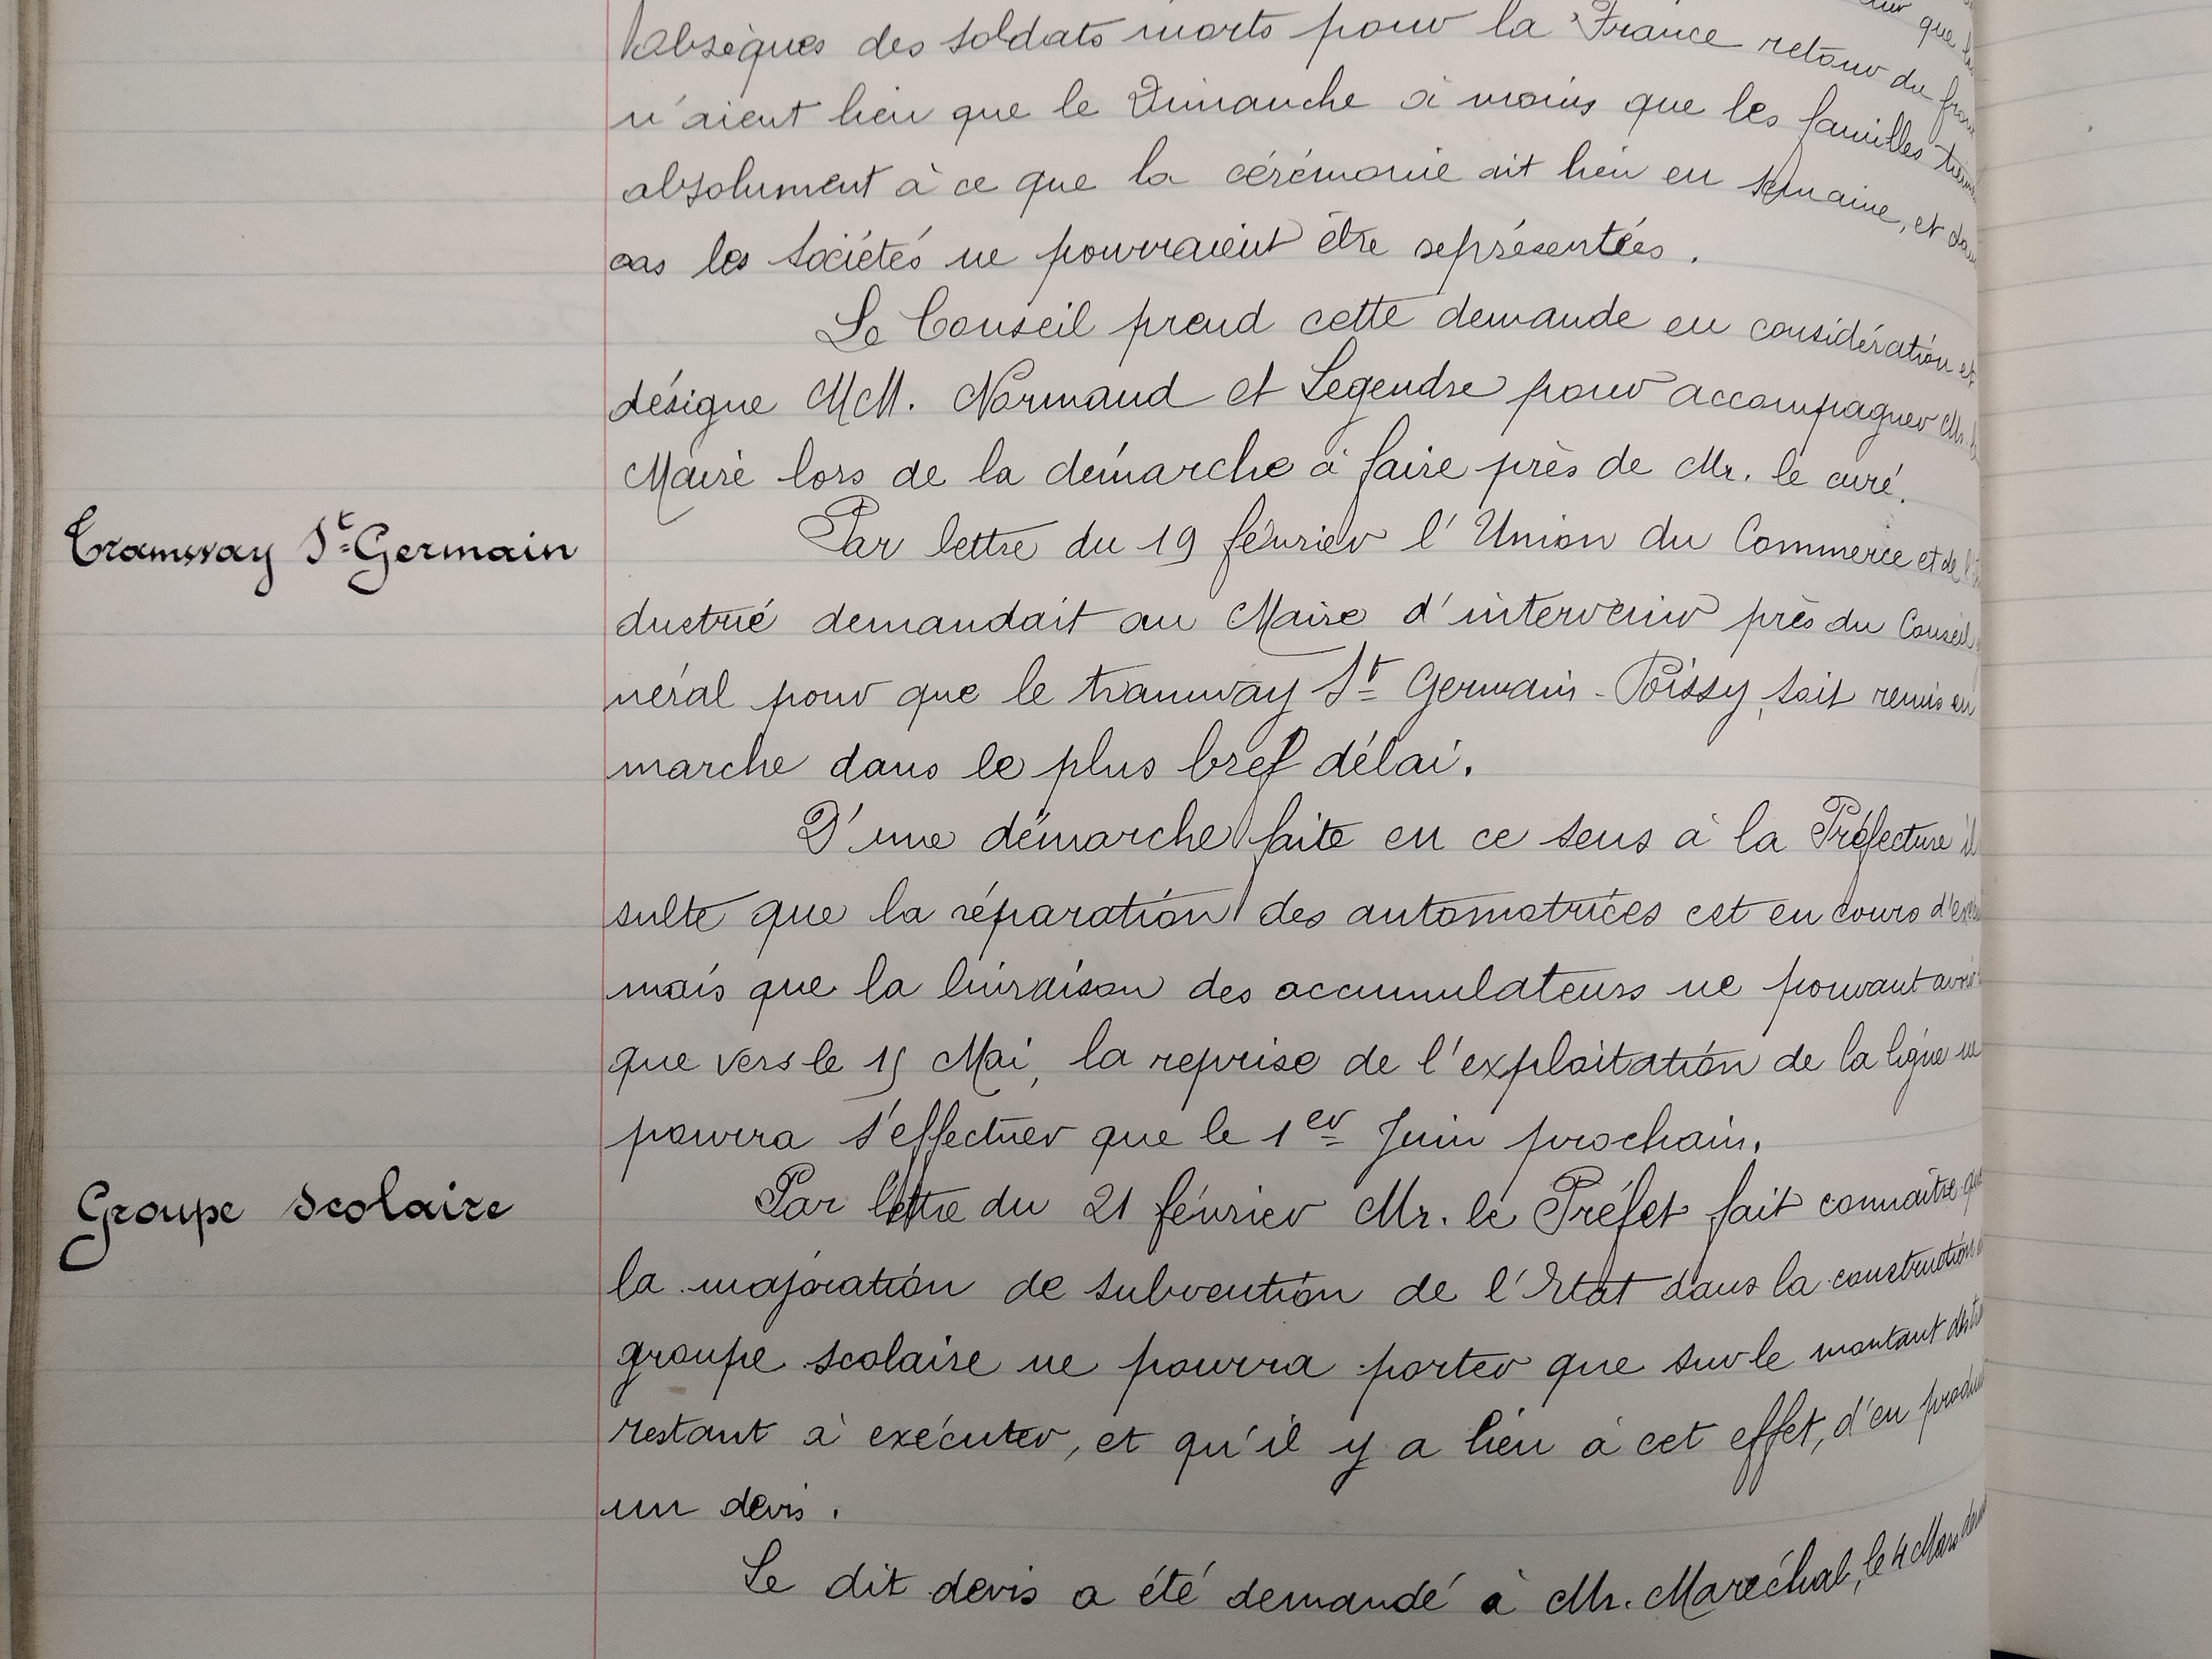 que
obsèques des soldats morts pour la France retour du
n'aient lieu que le Dimanche à moins que les familles
absolument à ce que la cérémonie ait lieu en semaine, et
cas les Sociétés ne pourraient être représentées.
Le Conseil prend cette demande en considération et
désigne MM. Normand et Legendre pour accompagner Mr.
Maire lors de la démarche à faire près de Mr. le curé.
Tramway St Germain
Par lettre du 19 février l'Union du Commerce et de
dustrie demandait au Maire d'intervenir près du Conseil
néral pour que le tramway St Germain-Poissy, soit remis en
marche dans le plus bref délai.
D'une démarche faite en ce sens à la Préfecture il
sulte que la réparation des automotrices est en cours
mais que la livraison des accumulateurs ne pouvant avoir
que vers le 15 Mai, la reprise de l'exploitation de la ligne ne
pourra s'effectuer que le 1er Juin prochain.
Groupe scolaire
Par lettre du 21 février Mr. le Préfet fait connaître que
la majoration de subvention de l'Etat dans la construction
groupe scolaire ne pourra porter que sur le montant
restant à exécuter, et qu'il y a lieu à cet effet, d'en
un devis.
Le dit devis a été demandé à Mr. Maréchal, le 4 Mars